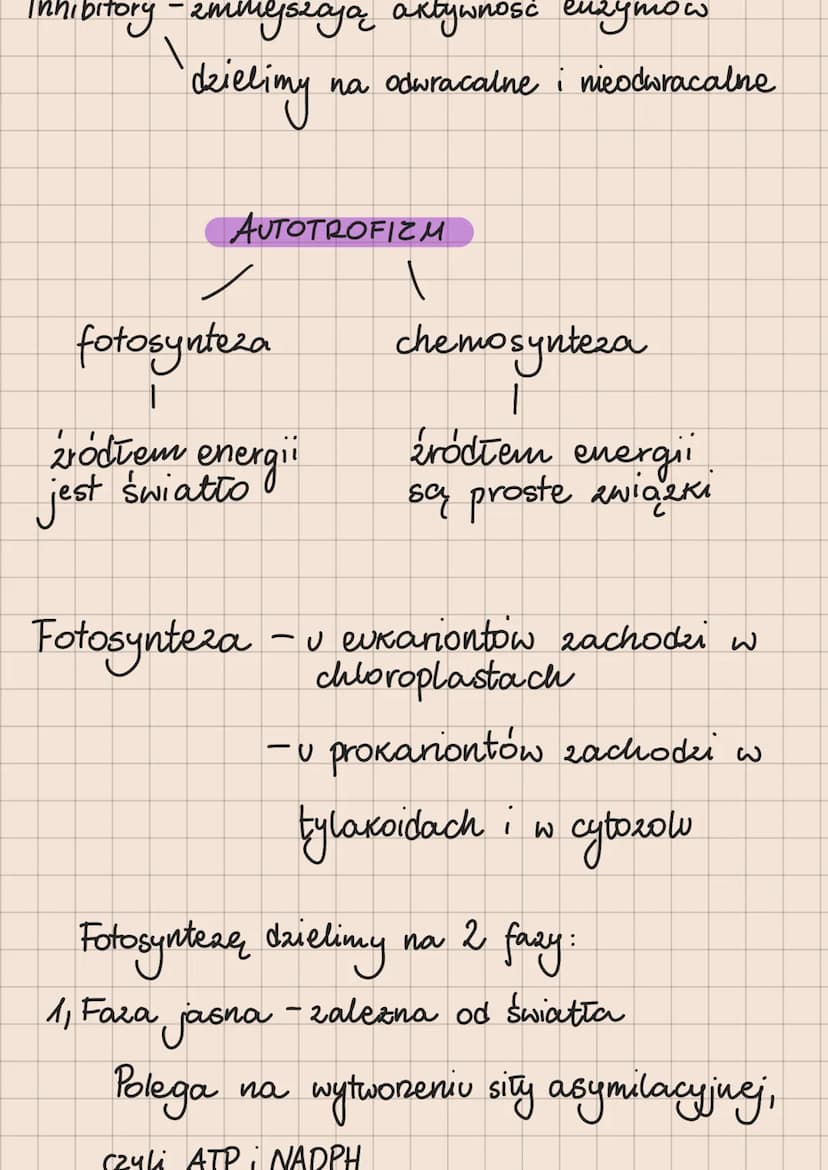 Inhibitory - zmniejszają aktywność enzymów
dzielimy na odwracalne i nieodwracalne
AUTOTROFIZM
fotosynteza chemosynteza
źródłem energii źródłem energii
jest światło są proste związki
Fotosynteza - u eukariontów zachodzi w
chloroplastach
- u prokariontów zachodzi w
tylakoidach i w cytozolu
Fotosyntezę dzielimy na 2 fazy:
1, Faza jasna - zależna od światła
Polega na wytworzeniu siły asymilacyjnej,
czyli ATP i NADPH